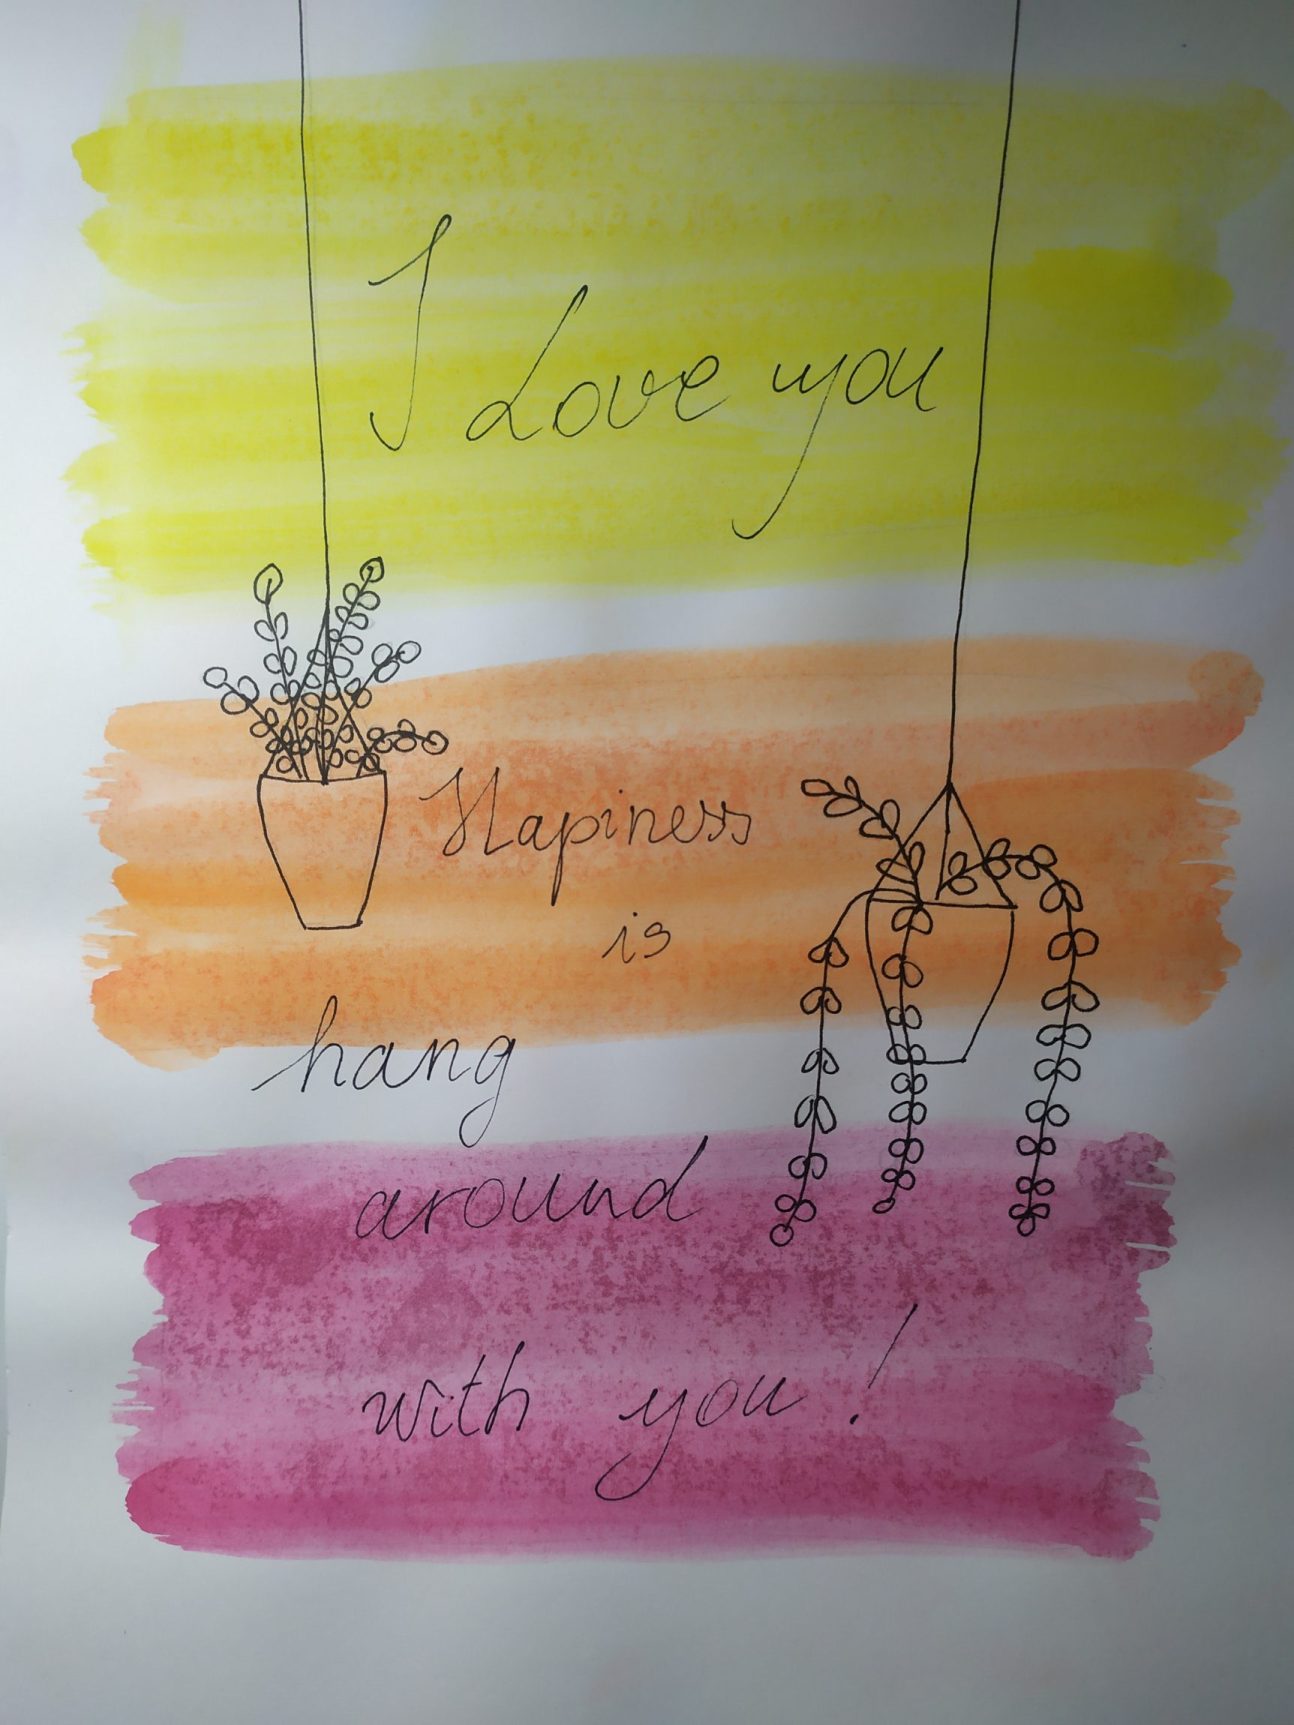 I Love you
Hapiness
is
hang
around
with you!